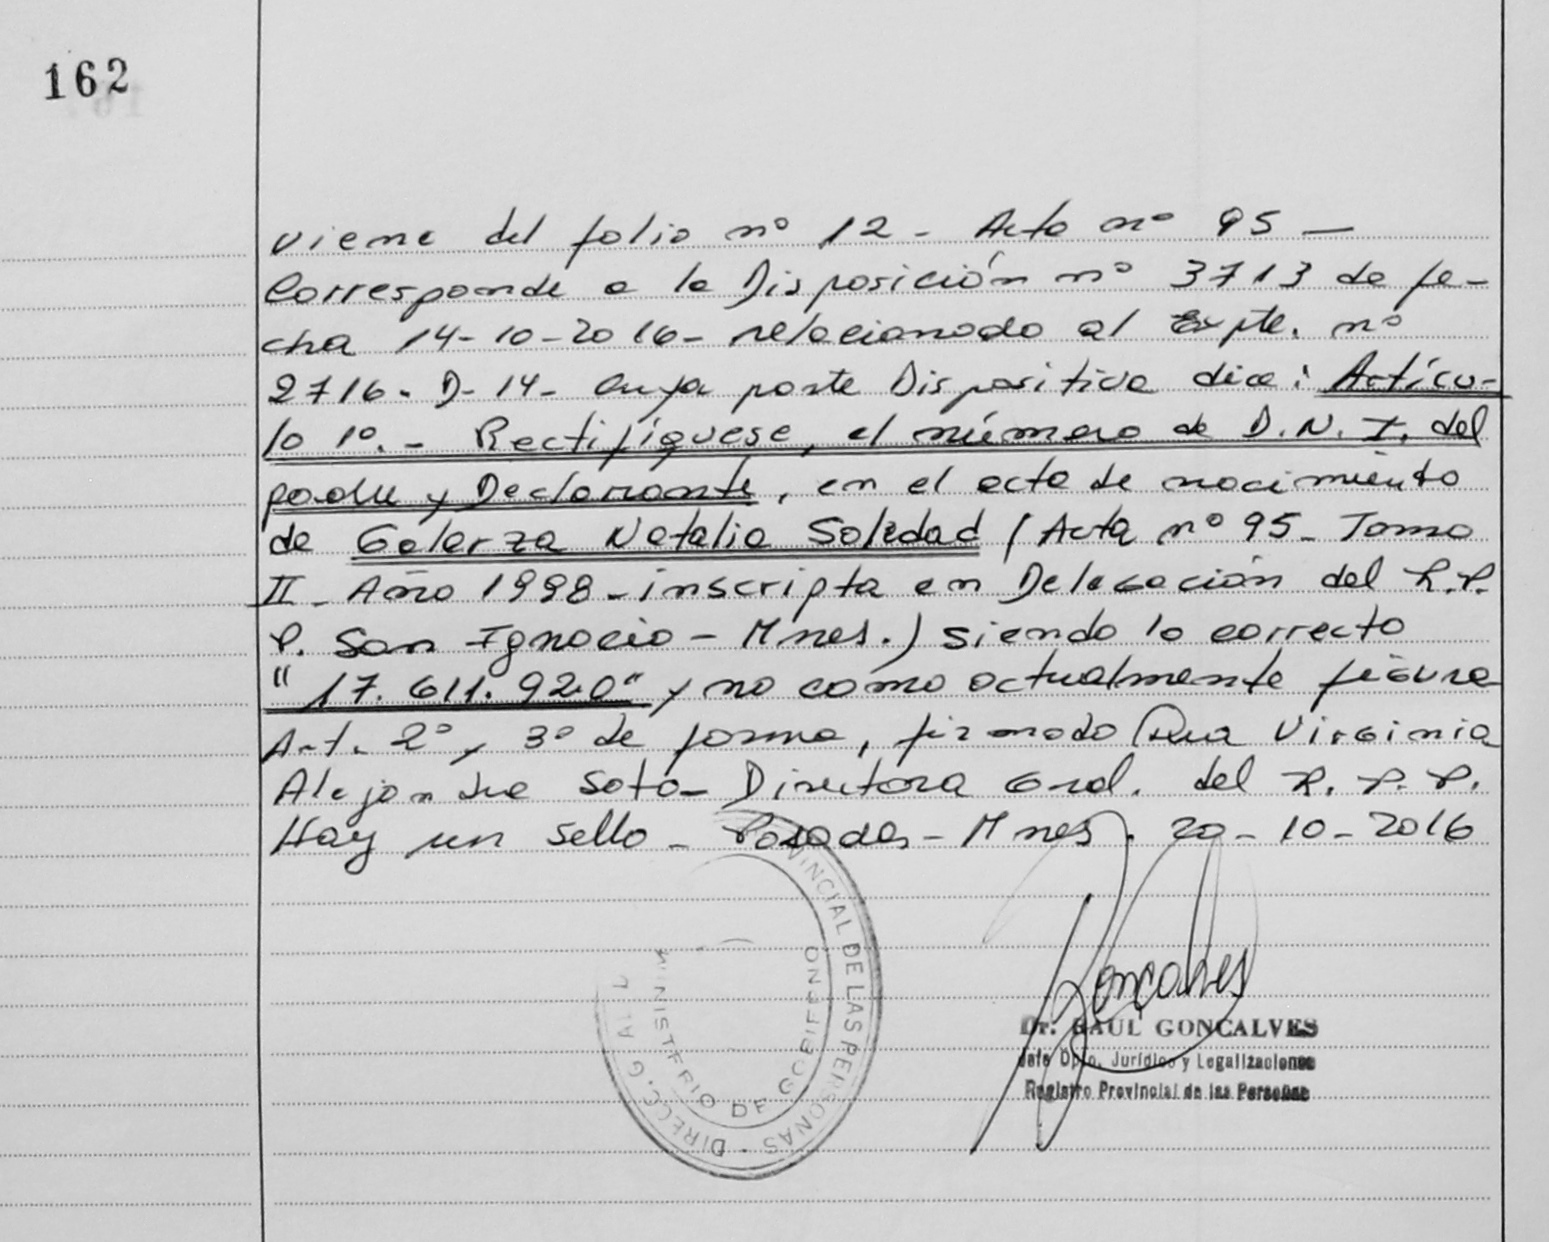 162
viene del folio nº 12 - Acta nº 95 —
Corresponde a la Disposición nº 3713 de fe-
cha 14-10-2016- relacionado al Expte. nº
2716- D-14- Cuya parte Dispositiva dice: Artícu-
lo 1º.- Rectifíquese, el número de D.N.I. del
padre y Declarante, en el acta de nacimiento
de Galarza Natalia Soledad (Acta nº 95- Tomo
II - Año 1998 - inscripta en Delegación del R.P.
P. San Ignacio - Mnes.) siendo lo correcto
"17.611.920" y no como actualmente figura
Art. 2º y 3º de forma, firmado Dra Virginia
Alejandra Soto- Directora Gral. del R.P.P.
Hay un sello - Posadas - Mnes. 20-10-2016
VINCIAL DE LAS PERSONAS - DIRECC. G
MINISTERIO DE GOBIERNO
Goncalves
Dr. RAUL GONCALVES
Jefe Dpto. Jurídico y Legalizaciones
Registro Provincial de las Personas